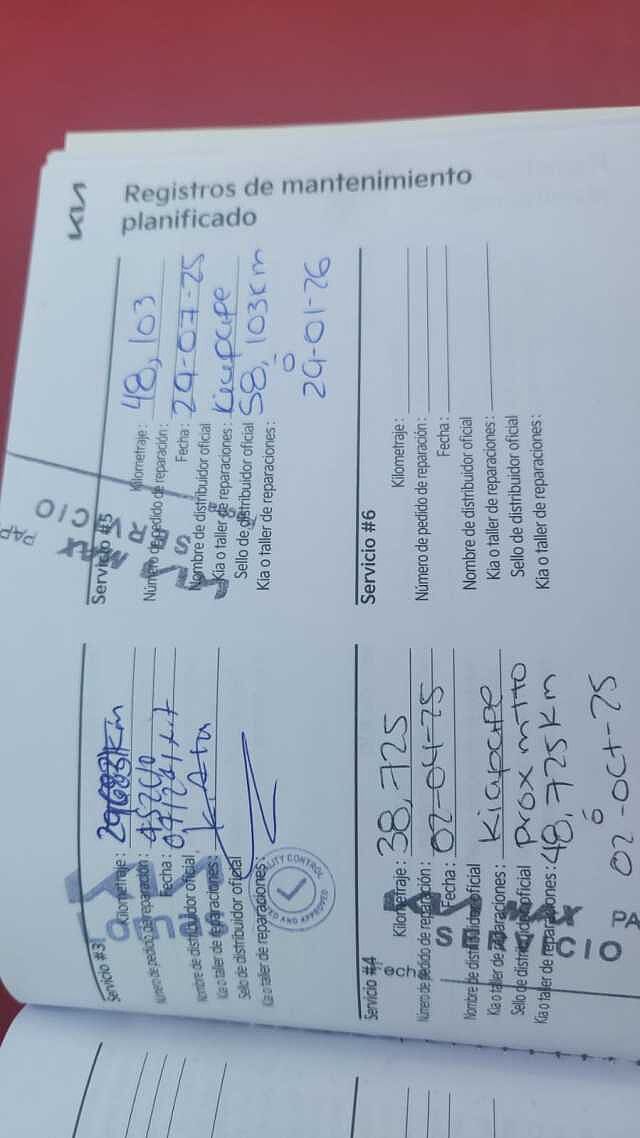 KIA
Registros de mantenimiento
planificado
Servicio #3
Kilometraje:
Número de pedido de reparación: 45240
Fecha:
Nombre de distribuidor oficial
Kia o taller de reparaciones:
Sello de distribuidor oficial
Kia o taller de reparaciones:
QUALITY CONTROL
Servicio #4
Kilometraje: 38,725
Número de pedido de reparación: 02-04-25
Fecha:
Nombre de distribuidor oficial
Kia o taller de reparaciones: Kiapape
Sello de distribuidor oficial prox mtto
Kia o taller de reparaciones: 48,725 Km
ó
02-OCT-25
KIA MAX
SERVICIO
PA
Servicio #5
Kilometraje: 48,103
Número de pedido de reparación:
Fecha: 29-07-25
Nombre de distribuidor oficial
Kia o taller de reparaciones: Kiapape
Sello de distribuidor oficial 58,103 Km
Kia o taller de reparaciones:
ó
29-01-26
KIA MAX
SERVICIO
PAP
Servicio #6
Kilometraje:
Número de pedido de reparación:
Fecha:
Nombre de distribuidor oficial
Kia o taller de reparaciones:
Sello de distribuidor oficial
Kia o taller de reparaciones: